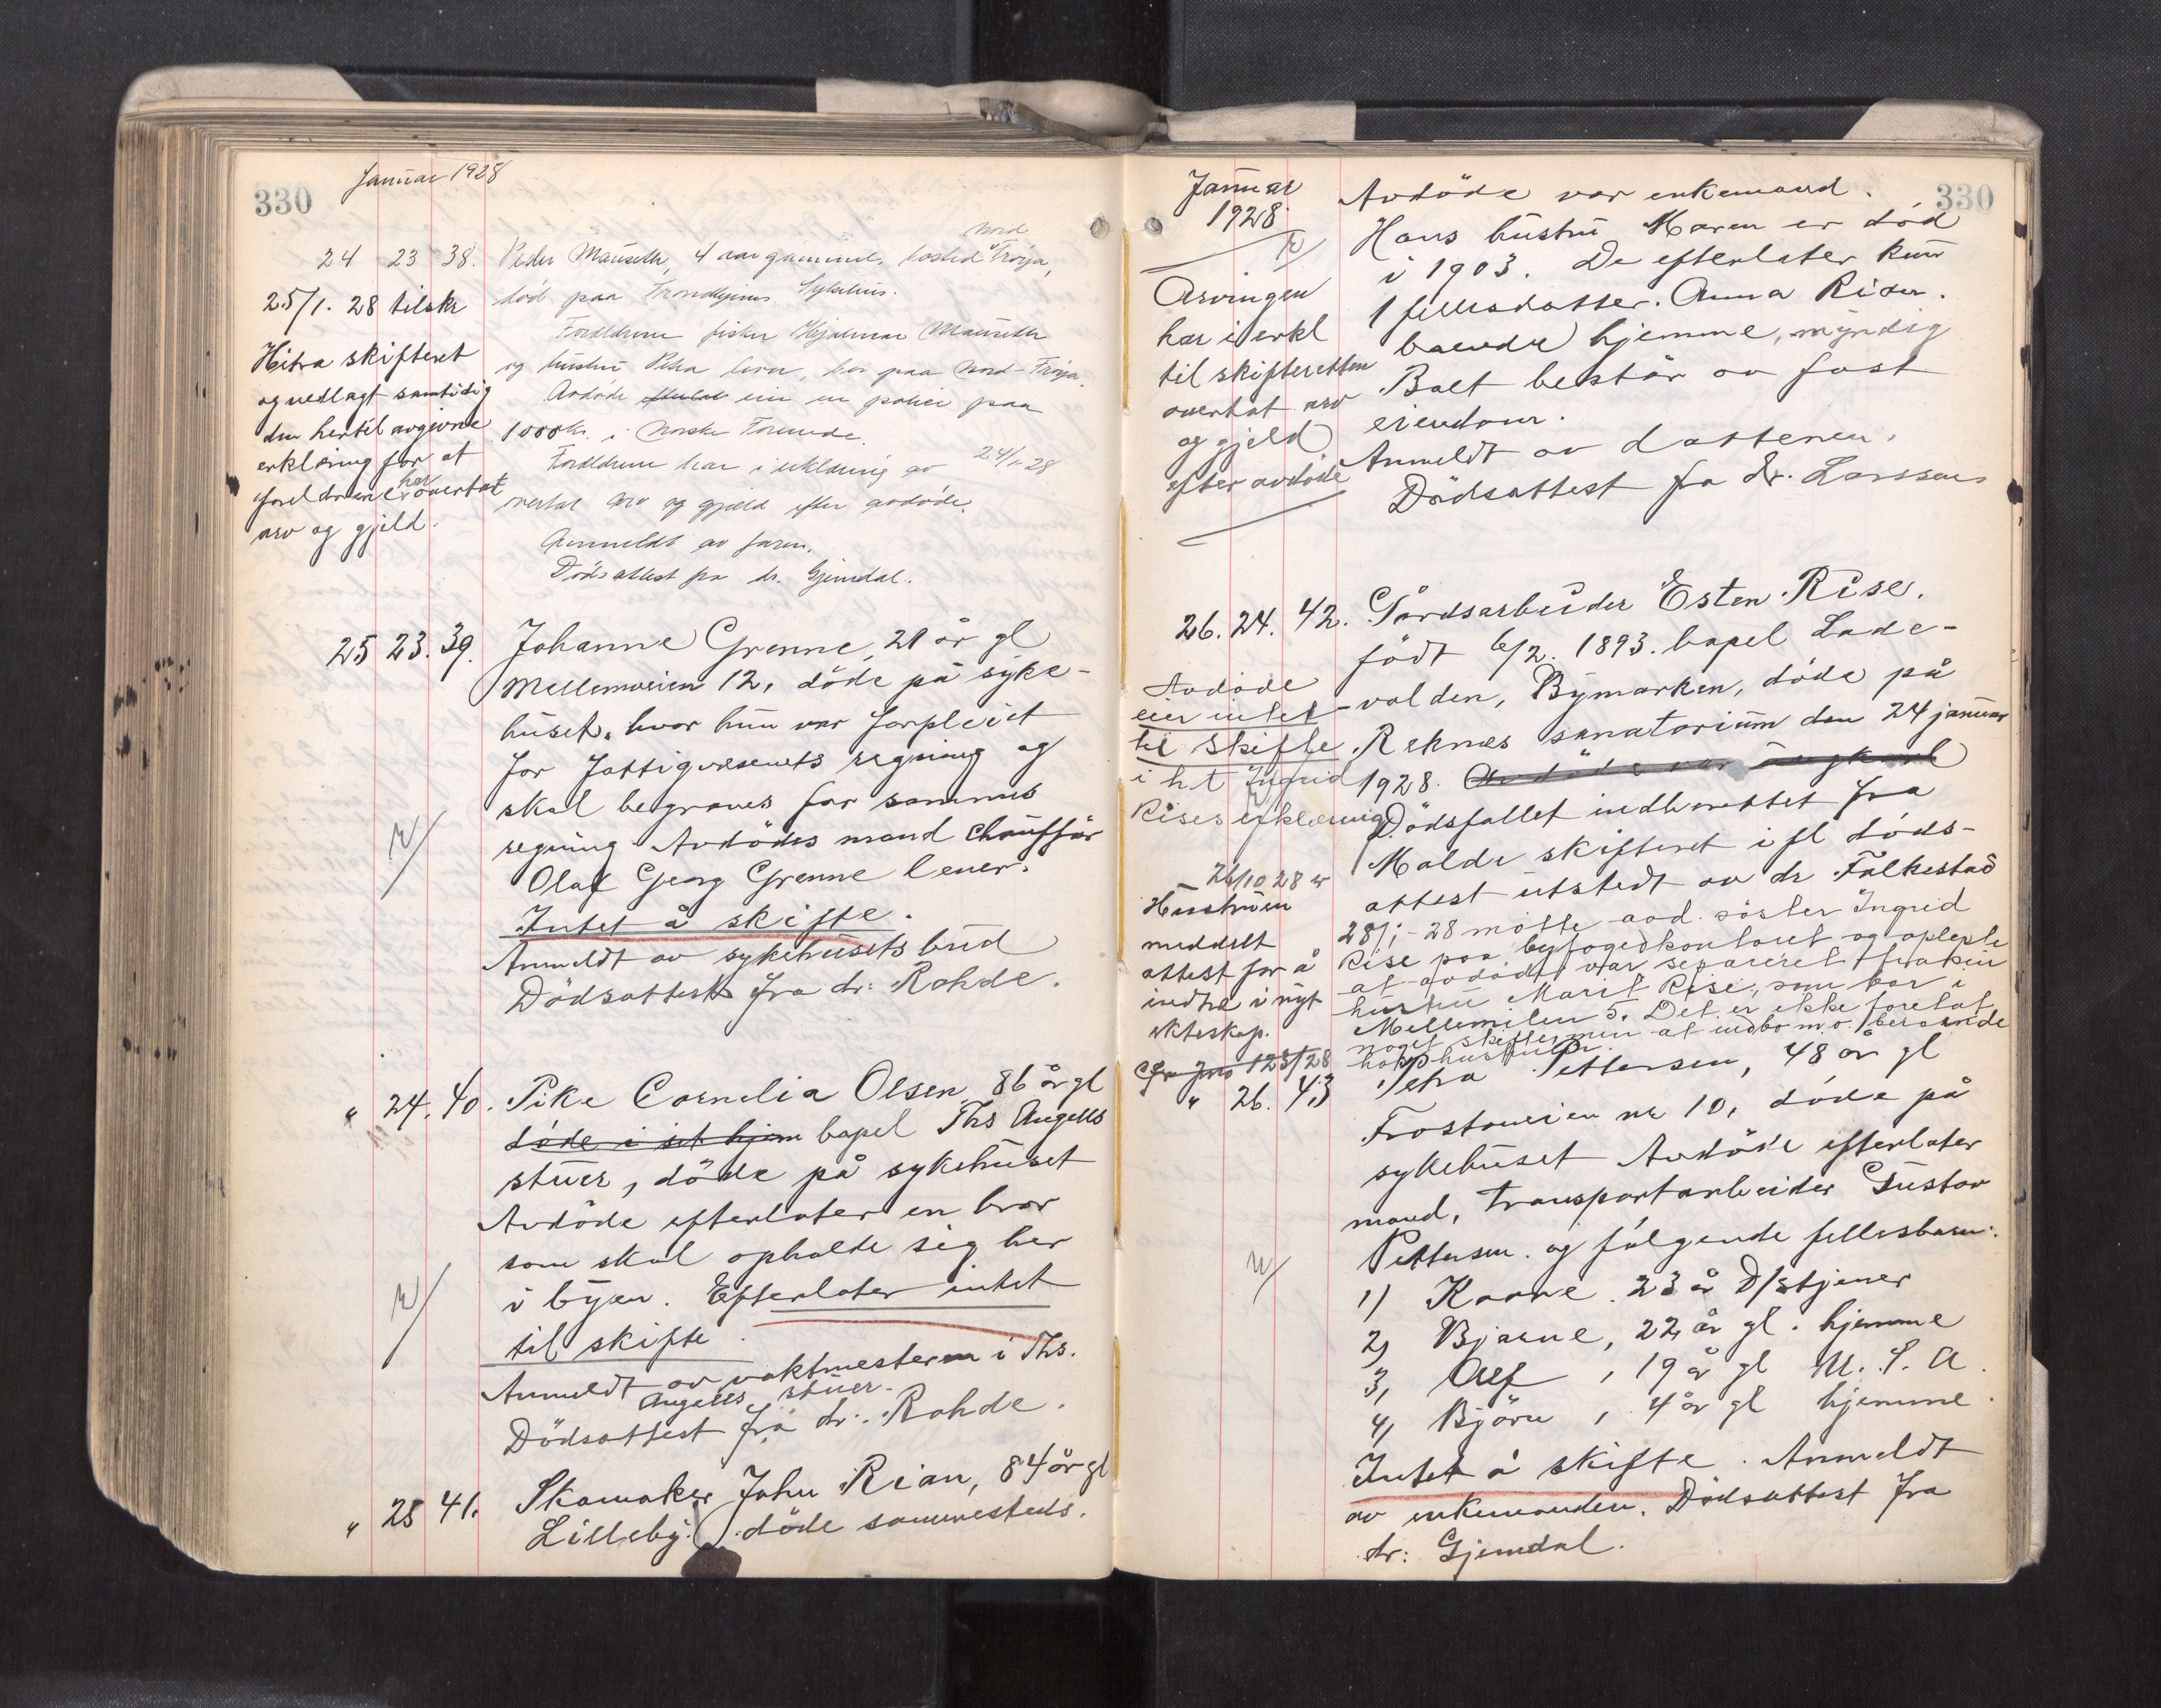 330
Januar 1928
24 23 38. Peder Mauseth, 4 aar gammel, bosted Nord Frøya,
død paa Trondhjems Sykehus.
Forældrene fisker Hjalmar Mauseth
og hustru Petra lever, bor paa Nord-Frøya.
Avdøde efterlot en polise paa
1000 kr. i Norske Forenede.
Forældrene har i erklæring av 24/1-28
overtat arv og gjæld efter avdøde.
Anmeldt av faren.
Dödsattest fra dr. Gjemdal.
25/1. 28 tilskr
Hitra skifteret
og vedlagt samtidig
den hertil avgivne
erklæring for at
foreldrene har overtat
arv og gjeld.
25 23. 39. Johanne Grenne, 21 år gl
Mellemveien 12, döde på syke-
huset, hvor hun var forpleiet
for Fattigvesenets regning og
skal begraves for sammes
regning. Avdödes mand chaufför
Olaf Georg Grenne lever.
Intet å skifte.
Anmeldt av sykehusets bud
Dödsattest fra dr: Rohde.
" 24. 40. Pike Cornelia Olsen, 86 år gl
döde i sit hjem bopel Ths Angells
stuer, döde på sykehuset
Avdöde efterlater en bror
som skal opholde sig her
i byen. Efterlater intet
til skifte.
Anmeldt av vaktmesteren i Ths.
Angells stuer.
Dödsattest fra dr: Rohde.
" 25 41. Skomaker John Rian, 84 år gl
Lilleby. döde sammesteds.
Januar
1928
330
Avdöde var enkemand.
Hans hustru Maren er död
i 1903. De efterlater kun
1 fellesdatter. Anna Rian.
boende hjemme, myndig
Boet består av fast
eiendom.
Anmeldt av datteren.
Dödsattest fra dr. Larssen
Arvingen
har i erkl
til skifteretten
overtat arv
og gjeld
efter avdöde
26. 24. 42. Gårdsarbeider Esten Rise.
födt 6/2. 1893. bopel Lade-
volden, Bymarken, döde på
Reknes sanatorium den 24 januar
1928. Avdöde var ungkarl
Dödsfallet indberettet fra
Molde skifteret ifl döds-
attest utstedt av dr Falkestad
28/1-28 møtte avd. söster Ingrid
Rise paa byfogedkontoret og oplyste
at avdöde var separeret fra sin
hustru Marit Rise, som bor i
Mellemilen 5. Det er ikke foretat
noget skifte, men at indbo m.v. beroende
hos hustruen.
Avdöde
eier intet
til skifte
i h.t Ingrid
Rises erklæring
26/10 28 er
Hustruen
meddelt
attest for å
indtre i nyt
ekteskap.
Cfr Jno 123/28
" 26. 43 Petra Pettersen, 48 år gl
Frostaveien nr 10, döde på
sykehuset Avdöde efterlater
mand, transportarbeider Gustav
Pettersen. og følgende fellesbarn:
1) Kaare. 23 år D/Stjener
2) Bjarne, 22 år gl. hjemme
3, Alf, 19 år gl U. S. A.
4, Björn, 4 år gl hjemme.
Intet å skifte. Anmeldt
av enkemanden. Dödsattest fra
dr: Gjemdal.